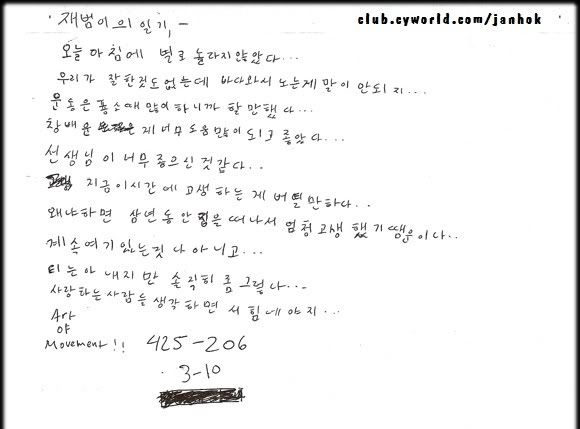 club.cyworld.com/janhok
'재범이의 일기,-
오늘 아침에 별로 놀라지않았다...
우리가 잘한것도 없는데 바다와서 노는게 말이 안되지...
운동은 평소때 많이하니까 할만했다...
창배운 제 너무 도움많이 되고 좋았다...
선생님이 너무 좋으신것갑다..
지금이시간에 고생하는게 버틸만하다..
왜냐하면 삼년동안 집을 떠나서 엄청고생했기땡운이다..
계속여기있는것다아니고...
티는아내지만 솔직히 좀그렇다...
사랑하는사람들생각하면서 힘내야지...
Art
of
Movement!!
425-206
3-10